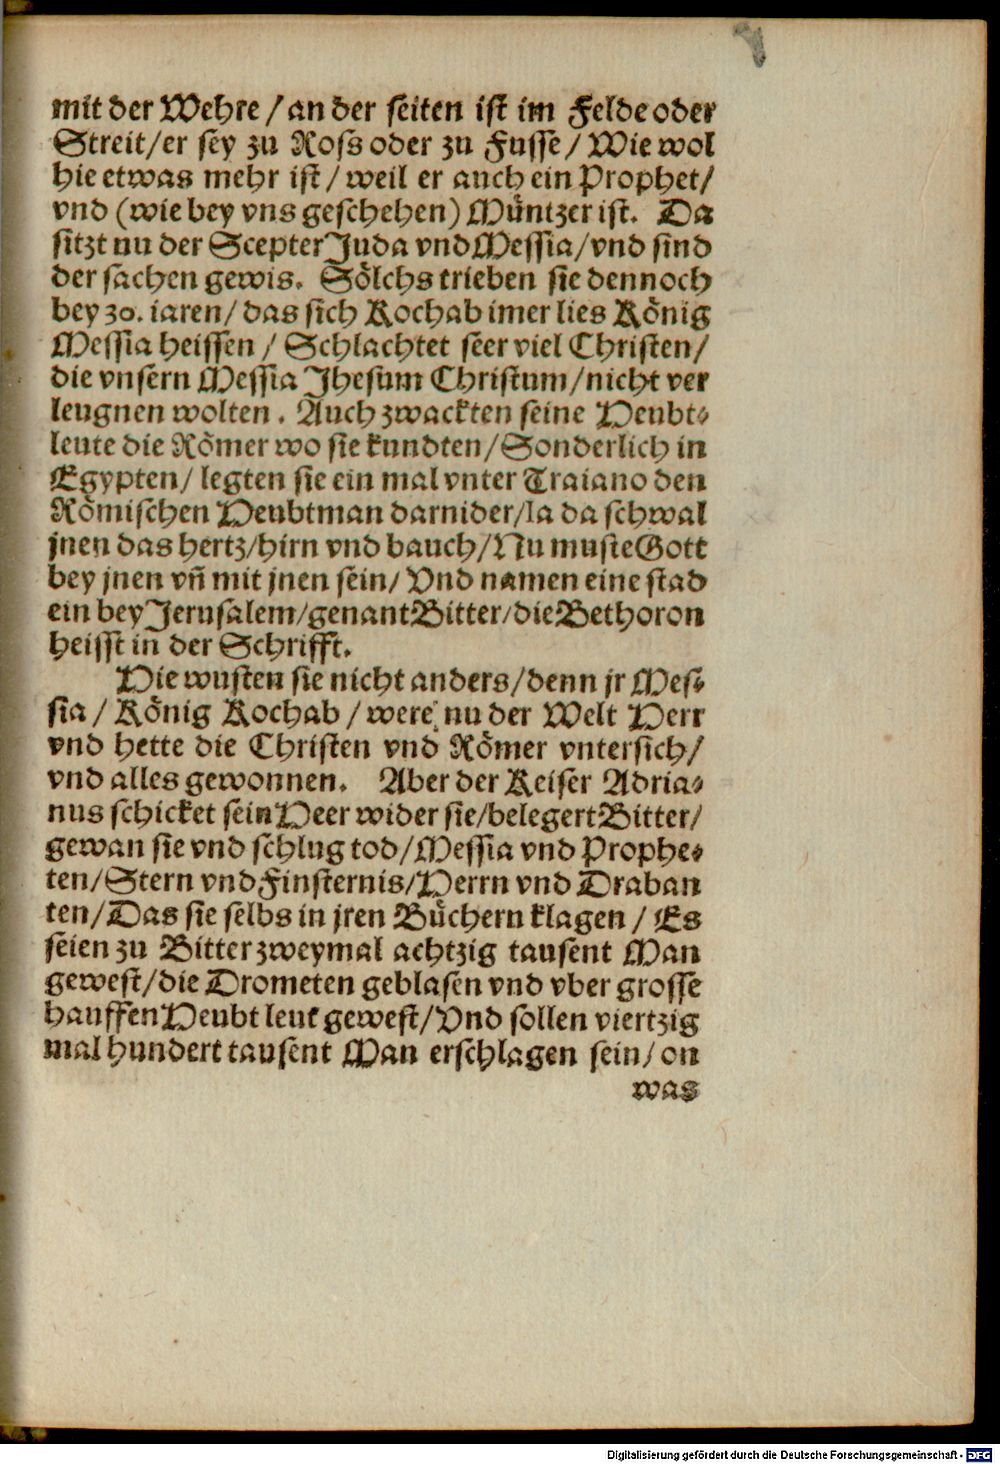 mit der Wehre / an der seiten ist im Felde oder
Streit/er sey zu Ross oder zu Fusse / Wie wol
hie etwas mehr ist / weil er auch ein Prophet/
vnd (wie bey vns geschehen) Müntzer ist. Da
sitzt nu der Scepter Juda vnd Messia/vnd sind
der sachen gewis. Sölchs trieben sie dennoch
bey 30. iaren/ das sich Kochab imer lies König
Messia heissen / Schlachtet seer viel Christen/
die vnsern Messia Jhesum Christum/nicht ver
leugnen wolten. Auch zwackten seine Heubt⸗
leute die Römer wo sie kundten/Sonderlich in
Egypten/ legten sie ein mal vnter Traiano den
Römischen Heubtman darnider/Ja da schwal
jnen das hertz/hirn vnd bauch/Nu muste Gott
bey jnen vñ mit jnen sein/ Vnd namen eine stad
ein bey Jerusalem/genant Bitter/die Bethoron
heisst in der Schrifft.
Hie wusten sie nicht anders/denn jr Mes⸗
sia / König Kochab / were nu der Welt Herr
vnd hette die Christen vnd Römer vntersich/
vnd alles gewonnen. Aber der Keiser Adria⸗
nus schicket sein Heer wider sie/belegert Bitter/
gewan sie vnd schlug tod/Messia vnd Prophe⸗
ten/Stern vnd Finsternis/Herrn vnd Draban
ten/Das sie selbs in jren Büchern klagen / Es
seien zu Bitter zweymal achtzig tausent Man
gewest/die Drometen geblasen vnd vber grosse
hauffen Heubt leut gewest/Vnd sollen viertzig
mal hundert tausent Man erschlagen sein/on
was
Digitalisierung gefördert durch die Deutsche Forschungsgemeinschaft - DFG